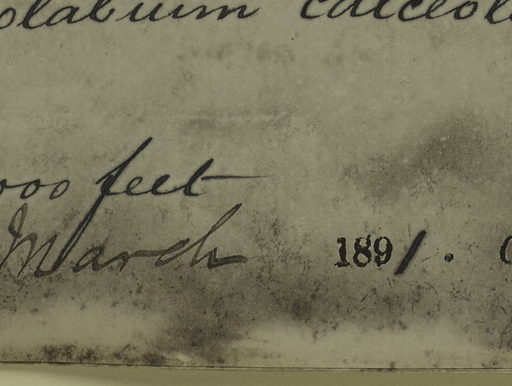 olabium calceol
000 feet
March 1891.